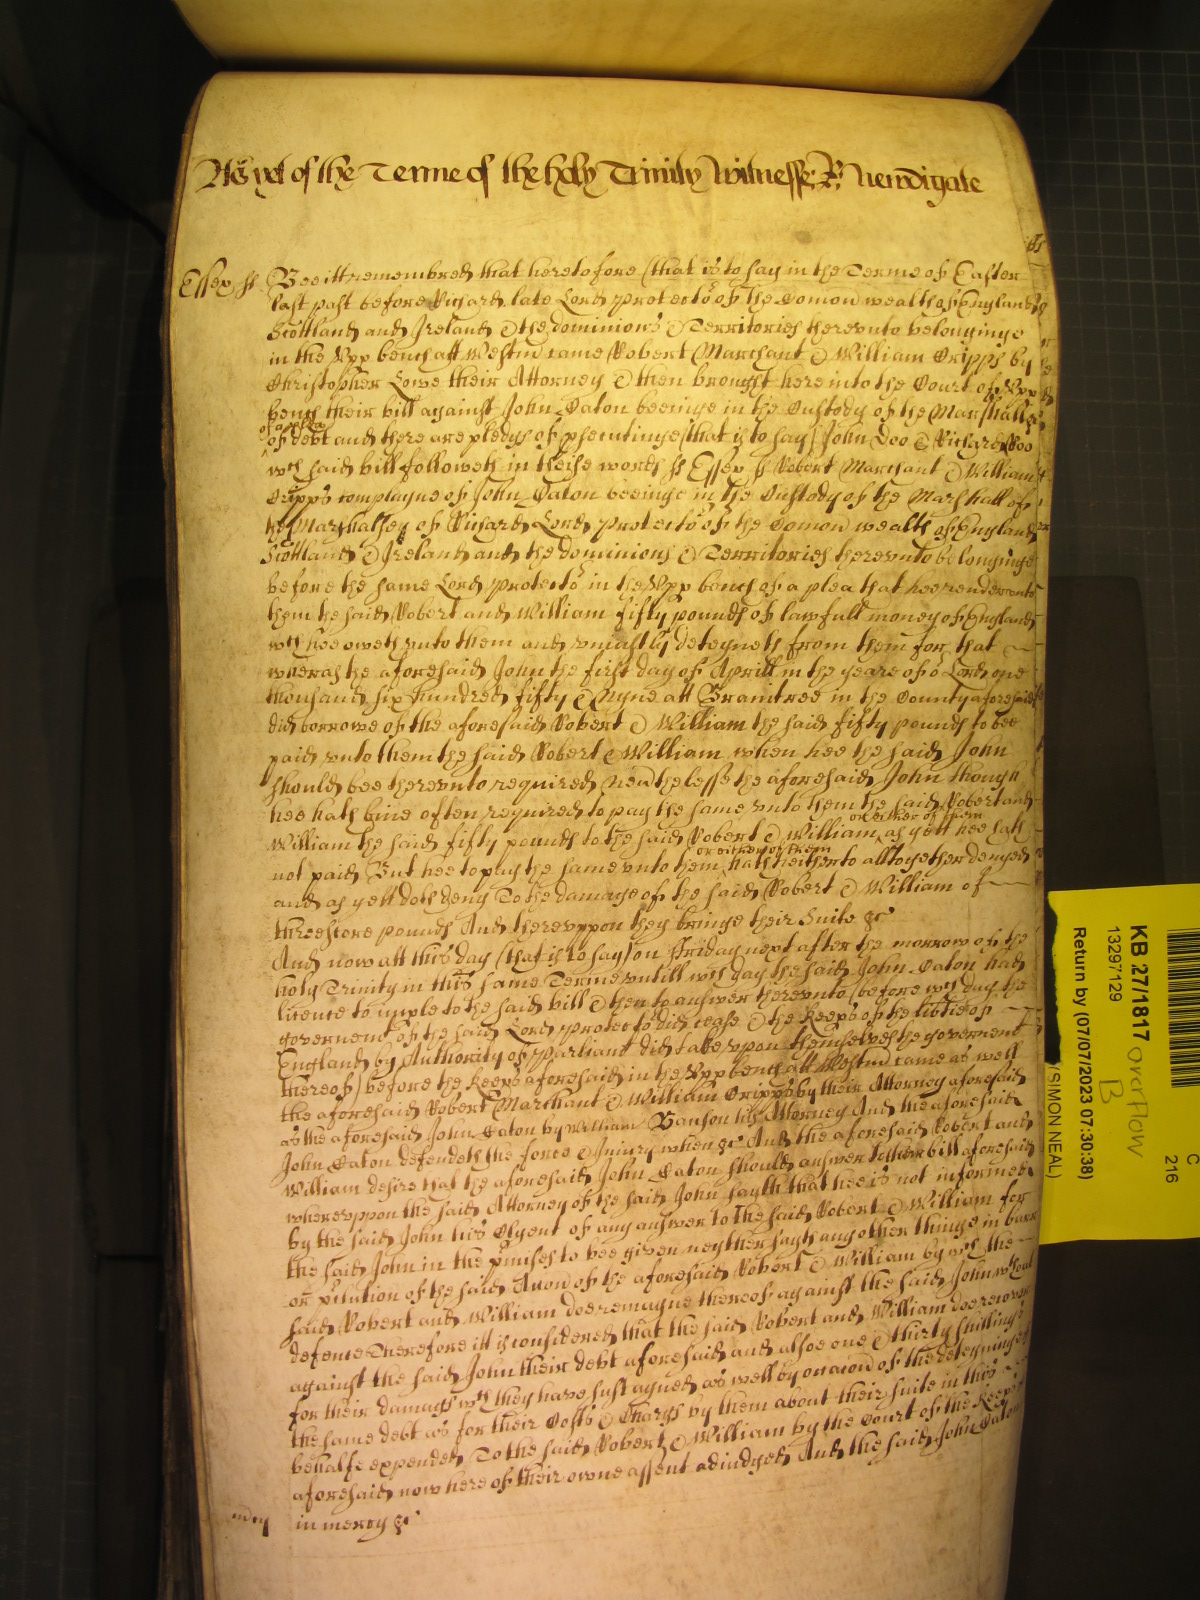 As yet of the Terme of the holy Trinity Witnesse &c Newdigate
Essex ss Bee itt remembred that heretofore (that is to say in the Terme of Easter
last past before Richard late Lord Protector of the Comon wealth of England
Scottland and Ireland & the dominions & Territories thereunto belonginge
in the Upp bench att Westm̃ came Robert Marchant & William Cripps by
Christopher Lowe their Attorney & then brought here into the Court of Upp
bench their bill against John Eaton beeinge in the Custody of the Marshall &c
of a plea
of debt and there are pledgs of p̱secutinge (that is to say) John Doo & Richard Roo
wch said bill followeth in theise words ss Essex ss Robert Marchant & William
Cripps complayne of John Eaton beeinge in the Custody of the Marshall of
the Marshalsey of Richard Lord Protector of the Comon wealth of England
Scottland & Ireland and the dominions & Territories thereunto belonginge
before the same Lord Protector in the Upp bench of a plea that hee render unto
them the said Robert and William fifty pounds of lawfull money of England
wch hee oweth unto them and uniustly deteyneth from them for that
wheras the aforesaid John the first day of Aprill in the yeare of or Lord one
thousand six hundred fifty & Nyne att Braintree in the County aforesaid
did borrowe of the aforesaid Robert & William the said fifty pounds to bee
paid unto them the said Robert & William when hee the said John
should bee thereunto required Nevthelesse the aforesaid John though
hee hath bine often required to pay the same unto them the said Robert and
or either of them
William the said fifty pounds to the said Robert & William as yett hee hath
or either of them
not paid But hee to pay the same unto them hath hitherto alltogether denyed
and as yett doth deny To the damage of the said Robert & William of
threescore pounds And thereuppon they bringe their Suite &c
And now att this day (that is to say) on Friday next after the morrow of the
holy Trinity in this same Terme untill wch day the said John Eaton had
licence to imple to the said bill & then to answer thereunto (before wch day the
governemt of the said Lord Protector did cease & the Keeps of the libtie of
England by Authority of Parliamt did take upon themselves the governemt
thereof) before the Keeps aforesaid in the Upp bench att Westm̃ came as well
the aforesaid Robert Marchant & William Cripps by their Attorney aforesaid
as the aforesaid John Eaton by William Banson his Attorney And the aforesaid
John Eaton defendeth the force & Iniury when &c And the aforesaid Robert and
William desire that the aforesaid John Eaton should answer to their bill aforesaid
whereuppon the said Attorney of the said John sayth that hee is not informed
by the said John his Clyent of any answer to the said Robert & William for
the said John in the p̱mises to bee given neyther sayth any other thinge in barr
or p̱clution of the said Accon of the aforesaid Robert & William by wch the
said Robert and William doe remayne thereof against the said John wthout
defence Therefore itt is considered that the said Robert and William doe recover
against the said John their debt aforesaid and alsoe one & thirty shillings
for their damags wch they have sustayned as well by occacon of the deteyninge
the same debt as for their Costs & Chargs by them about their suite in this
behalfe expended To the said Robert & William by the Court of the Keeps
aforesaid now here of their owne assent adiudged And the said John Eaton
mcy in mercy &c
KB 27/1817 overflow
B
13297129
Return by (07/07/2023 07:30:38)
(SIMON NEAL)
C
216